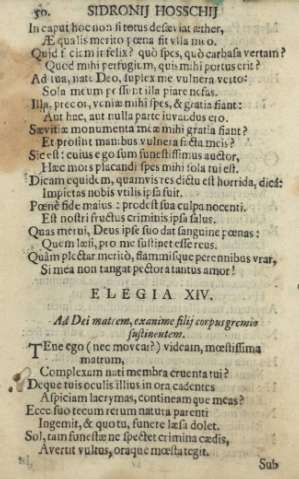 50. SIDRONII HOSSCHII
In caput hoc non si totus desæviat æther,
Æqualis merito pœna sit illa meo.
Quid faciam infelix? quò spes, quò carbasa vertam?
Quod mihi perfugium, quis mihi portus erit?
Ad tua, nate Deo, suplex me vulnera verto:
Sola meum possunt illa piare nefas.
Illa, precor, veniæ mihi spes, & gratia fiant:
Aut hac, aut nulla parte iuvandus ero.
Sævitiæ monumenta meæ mihi gratia fiant?
Et prosint manibus vulnera facta meis?
Sic est: cuius ego sum funestissimus auctor,
Hæc mors placandi spes mihi sola tui est.
Dicam equidem, quamvis res dictu est horrida, dicā:
Impietas nobis vtilis ipsa fuit.
Pœnè fide maius: prodest sua culpa nocenti.
Est nostri fructus criminis ipsa salus.
Quas merui, Deus ipse suo dat sanguine pœnas:
Quem læsi, pro me sustinet esse reus.
Quàm plectar meritò, flammisque perennibus vrar,
Si mea non tangat pectora tantus amor!
ELEGIA XIV.
Ad Dei matrem, exanime filij corpus gremio
sustinentem.
TEne ego (nec moveat?) videam, mœstissima
matrum,
Complexam nati membra cruenta tui?
Deque tuis oculis illius in ora cadentes
Aspiciam lacrymas, contineamque meas?
Ecce suo tecum rerum natura parenti
Ingemit, & quo tu, funere læsa dolet.
Sol, tam funestæ ne spectet crimina cædis,
Avertit vultus, oraque mœsta tegit.
Sub